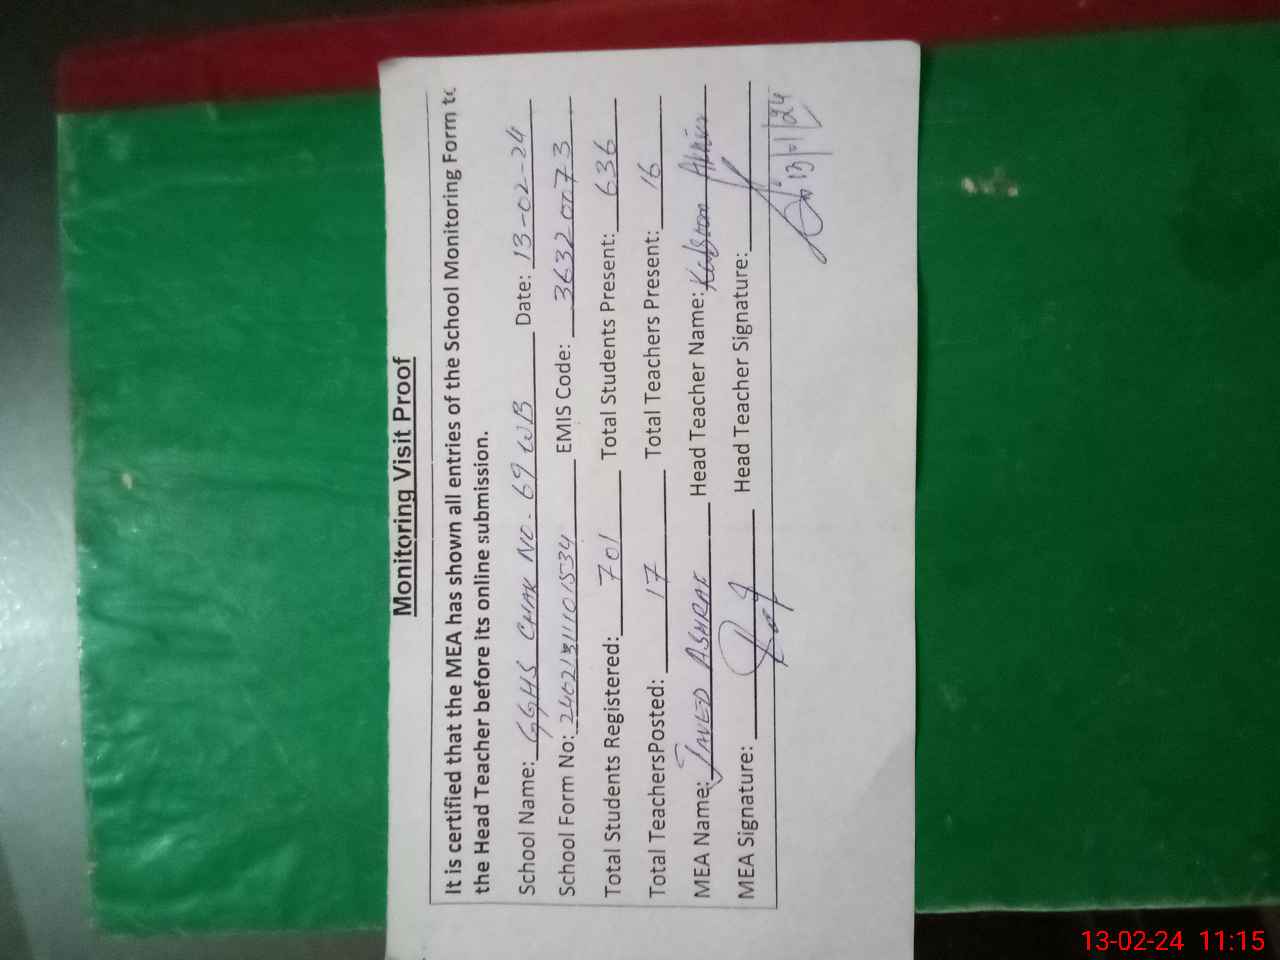 Monitoring Visit Proof
It is certified that the MEA has shown all entries of the School Monitoring Form to
the Head Teacher before its online submission.
School Name: GGHS CHAK NO. 69 WB Date: 13-02-24
School Form No: EMIS Code: 36320073
Total Students Registered: 701 Total Students Present: 636
Total TeachersPosted: 17 Total Teachers Present: 16
MEA Name: JAVED ASHRAF Head Teacher Name:
MEA Signature: Head Teacher Signature:
13-02-24 11:15